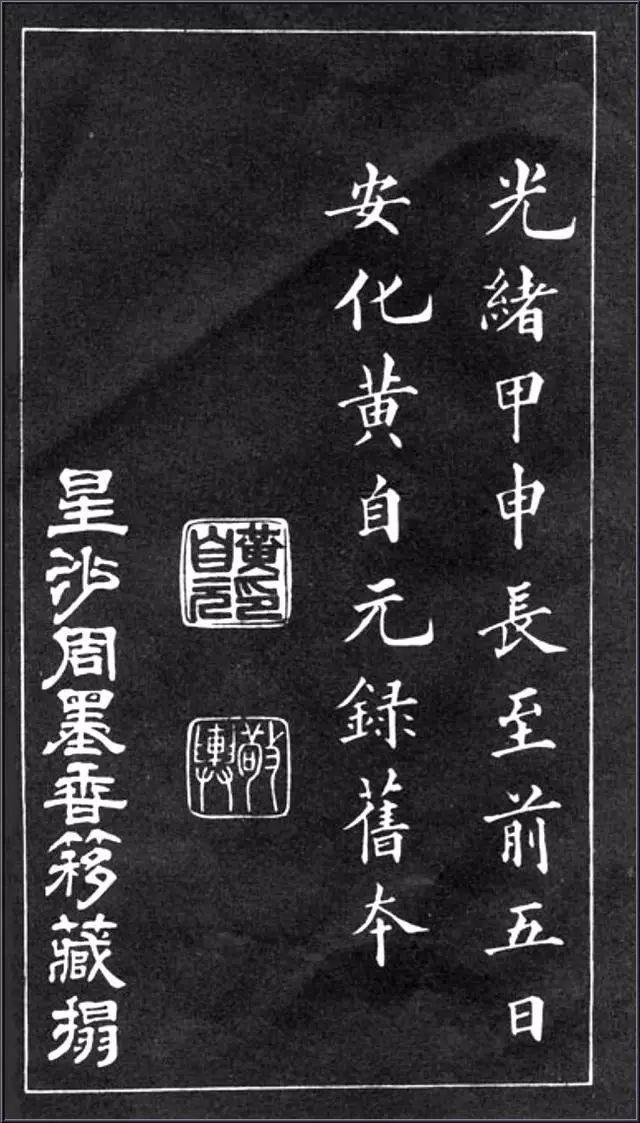 光緒甲申長至前五日
安化黄自元録舊本
黄印自元
敬輿
星沙周墨香簃藏搨